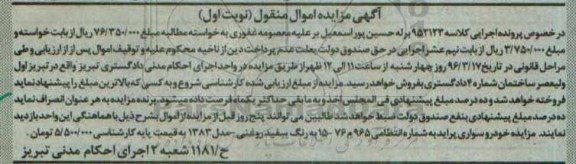 آگهی مزایده اموال منقول (نوبت اول)
در خصوص پرونده اجرایی کلاسه ۹۵۲۱۲۳ بر له حسین پور اسمعیل بر علیه معصومه غفوری به خواسته مطالبه مبلغ ۷۶/۳۵۰/۰۰۰ ریال از بابت خواسته و
مبلغ ۳/۷۵۰/۰۰۰ ریال از بابت نیم عشر اجرایی در حق صندوق دولت بعلت عدم پرداخت دین از ناحیه محکوم علیه و توقیف اموال پس از ارزیابی و طی
مراحل قانونی در تاریخ ۹۶/۳/۱۷ روز چهار شنبه از ساعت ۱۱ الی ۱۲ ظهر از طریق مزایده در واحد اجرای احکام مدنی دادگستری تبریز واقع در تبریز اول
ولیعصر ساختمان شماره ۴ دادگستری بفروش خواهد رسید. مزایده از مبلغ ارزیابی شده کارشناسی شروع و به کسی که بالاترین مبلغ را پیشنهاد نماید
فروخته خواهد شد و ده درصد مبلغ پیشنهادی فی المجلس اخذ و به مابقی حداکثر یکماه فرصت داده میشود. برنده مزایده به هر عنوان انصراف نماید
ده درصد مبلغ پیشنهادی بنفع صندوق دولت ضبط خواهد شد طالبین می توانند پنج روز قبل از مزایده از اموال بشرح ذیل با هماهنگی این واحد بازدید
نمایند. مزایده خودرو سواری پراید به شماره انتظامی ۹۶۵ م ۷۶ -۱۵ به رنگ سفید روغنی -مدل ۱۳۸۳ به قیمت پایه کارشناسی ۵/۵۰۰/۰۰۰ تومان.
ح/۱۱۸۱ شعبه ۲ اجرای احکام مدنی تبریز